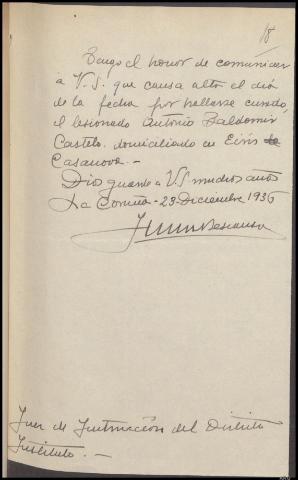 18
Tengo el honor de comunicar
a V.S. que causa alta el día
de la fecha por hallarse curado,
el lesionado Antonio Baldomir
Castelo. domiciliado en Eiris de
Casanova.-
Dios guarde a V.S muchos años
La Coruña - 23-Diciembre 1936
Juez de Instrucción del Distrito
Instituto.-